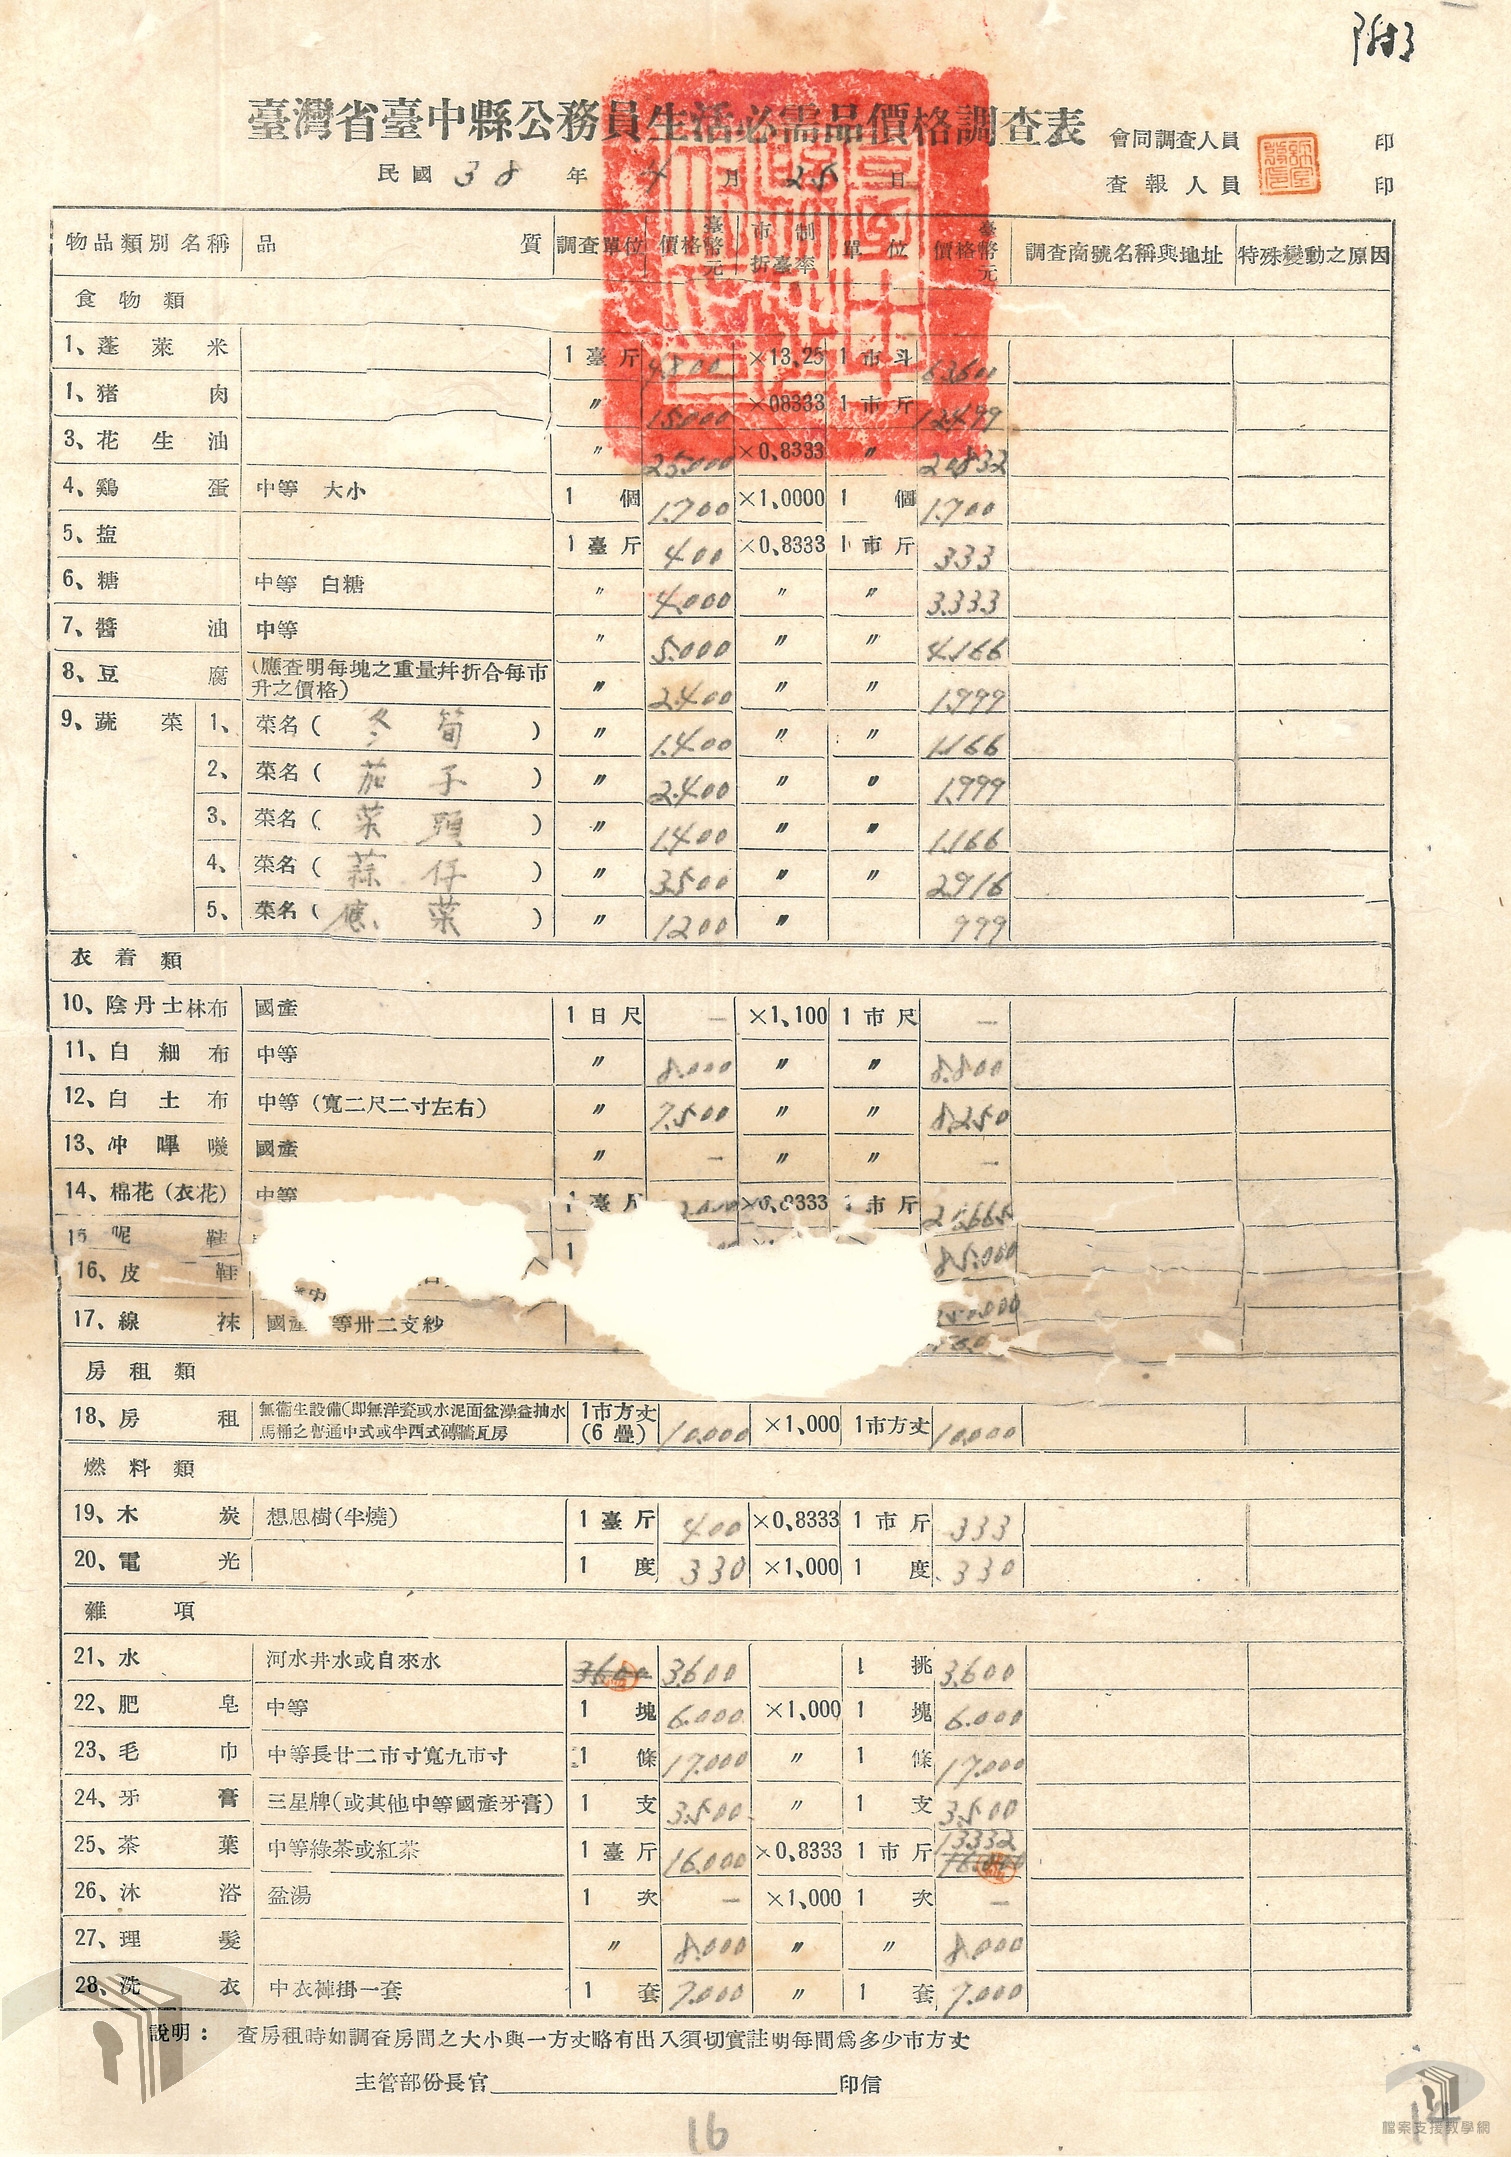 附3
臺灣省臺中縣公務員生活必需品價格調查表
會同調查人員 印
民國 38 年 4 月 25 日
查報人員 印
物品類別名稱 品 質 調查單位 價格臺幣元 市制折臺率 單位 價格臺幣元 調查商號名稱與地址 特殊變動之原因
食物類
1、蓬萊米 1臺斤 4.800 ×13.25 1市斗 63.600
1、猪肉 〃 15.000 ×08333 1市斤 12.499
3、花生油 〃 25.000 ×0.8333 〃 20.832
4、鷄蛋 中等 大小 1個 1.700 ×1.0000 1個 1.700
5、塩 1臺斤 400 ×0.8333 1市斤 333
6、糖 中等 白糖 〃 4.000 〃 〃 3.333
7、醬油 中等 〃 5.000 〃 〃 4.166
8、豆腐 (應查明每塊之重量幷折合每市升之價格) 〃 2.400 〃 〃 1.999
9、蔬菜 1、菜名( 冬筍 ) 〃 1.400 〃 〃 1.166
2、菜名( 茄子 ) 〃 2.400 〃 〃 1.999
3、菜名( 菜頭 ) 〃 1.400 〃 〃 1.166
4、菜名( 蒜仔 ) 〃 3.500 〃 〃 2.916
5、菜名( 菜 ) 〃 1200 〃 999
衣着類
10、陰丹士林布 國產 1日尺 — ×1.100 1市尺 —
11、白細布 中等 〃 8.000 〃 〃 8.800
12、白土布 中等(寬二尺二寸左右) 〃 7.500 〃 〃 8.250
13、冲嗶嘰 國產 〃 — 〃 〃 —
14、棉花(衣花) 中等 1臺斤 ×0.8333 1市斤
15 呢鞋 1 85.000
16、皮鞋 中
17、線袜 國產 等卅二支紗
房租類
18、房租 無衞生設備(即無洋瓷或水泥面盆澡盆抽水馬桶之普通中式或半西式磚牆瓦房 1市方丈(6疊) 10.000 ×1.000 1市方丈 10.000
燃料類
19、木炭 想思樹(半燒) 1臺斤 400 ×0.8333 1市斤 333
20、電光 1度 330 ×1.000 1度 330
雜項
21、水 河水井水或自來水 3600 3.600 1挑 3.600
22、肥皂 中等 1塊 6.000 ×1.000 1塊 6.000
23、毛巾 中等長廿二市寸寬九市寸 1條 17.000 〃 1條 17.000
24、牙膏 三星牌(或其他中等國產牙膏) 1支 3.500 〃 1支 3.500
25、茶葉 中等綠茶或紅茶 1臺斤 16.000 ×0.8333 1市斤 13.332 16.000
26、沐浴 盆湯 1次 — ×1.000 1次 —
27、理髮 〃 8.000 〃 〃 8.000
28、洗衣 中衣褲掛一套 1套 7.000 〃 1套 7.000
說明： 查房租時如調查房間之大小與一方丈略有出入須切實註明每間爲多少市方丈
主管部份長官 印信
16
14
檔案支援教學網